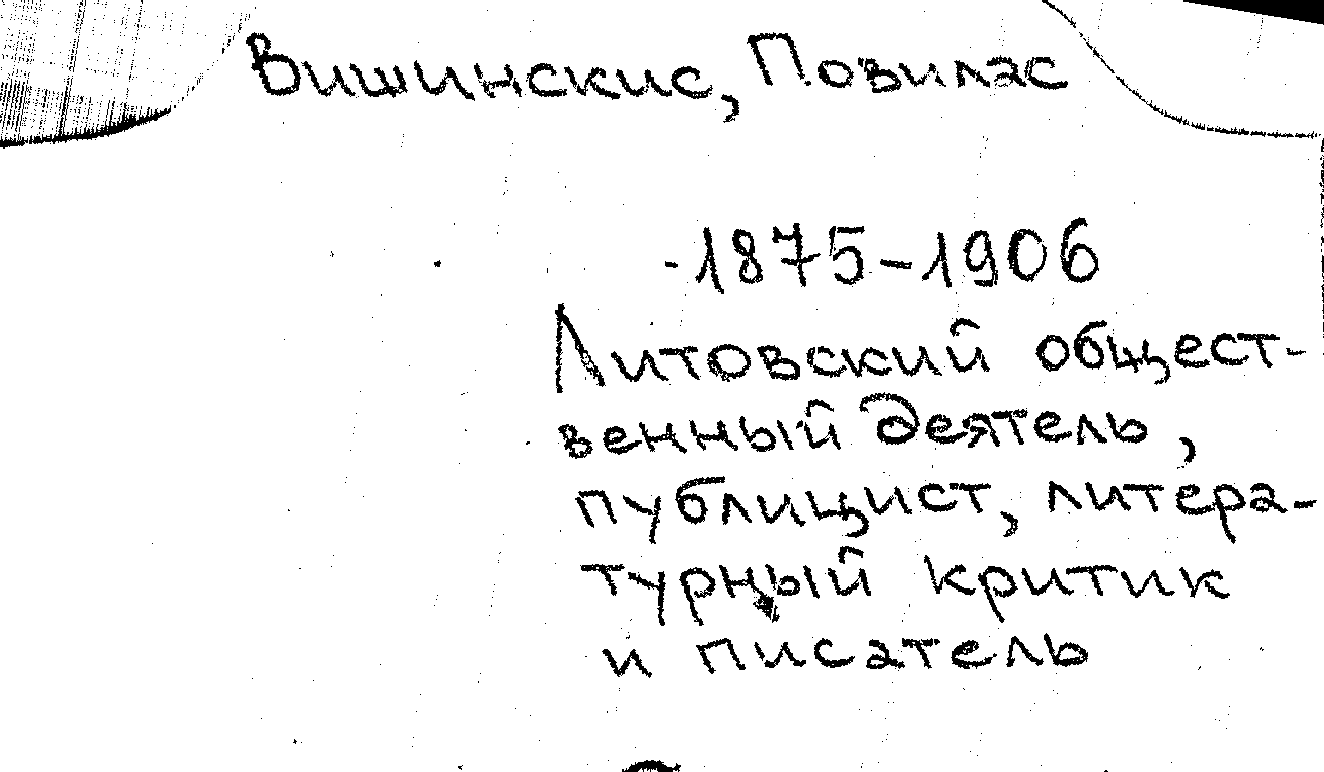 Вишинскис, Повилас
-1875-1906
Литовский общест-
венный деятель,
публицист, литера-
турный критик
и писатель